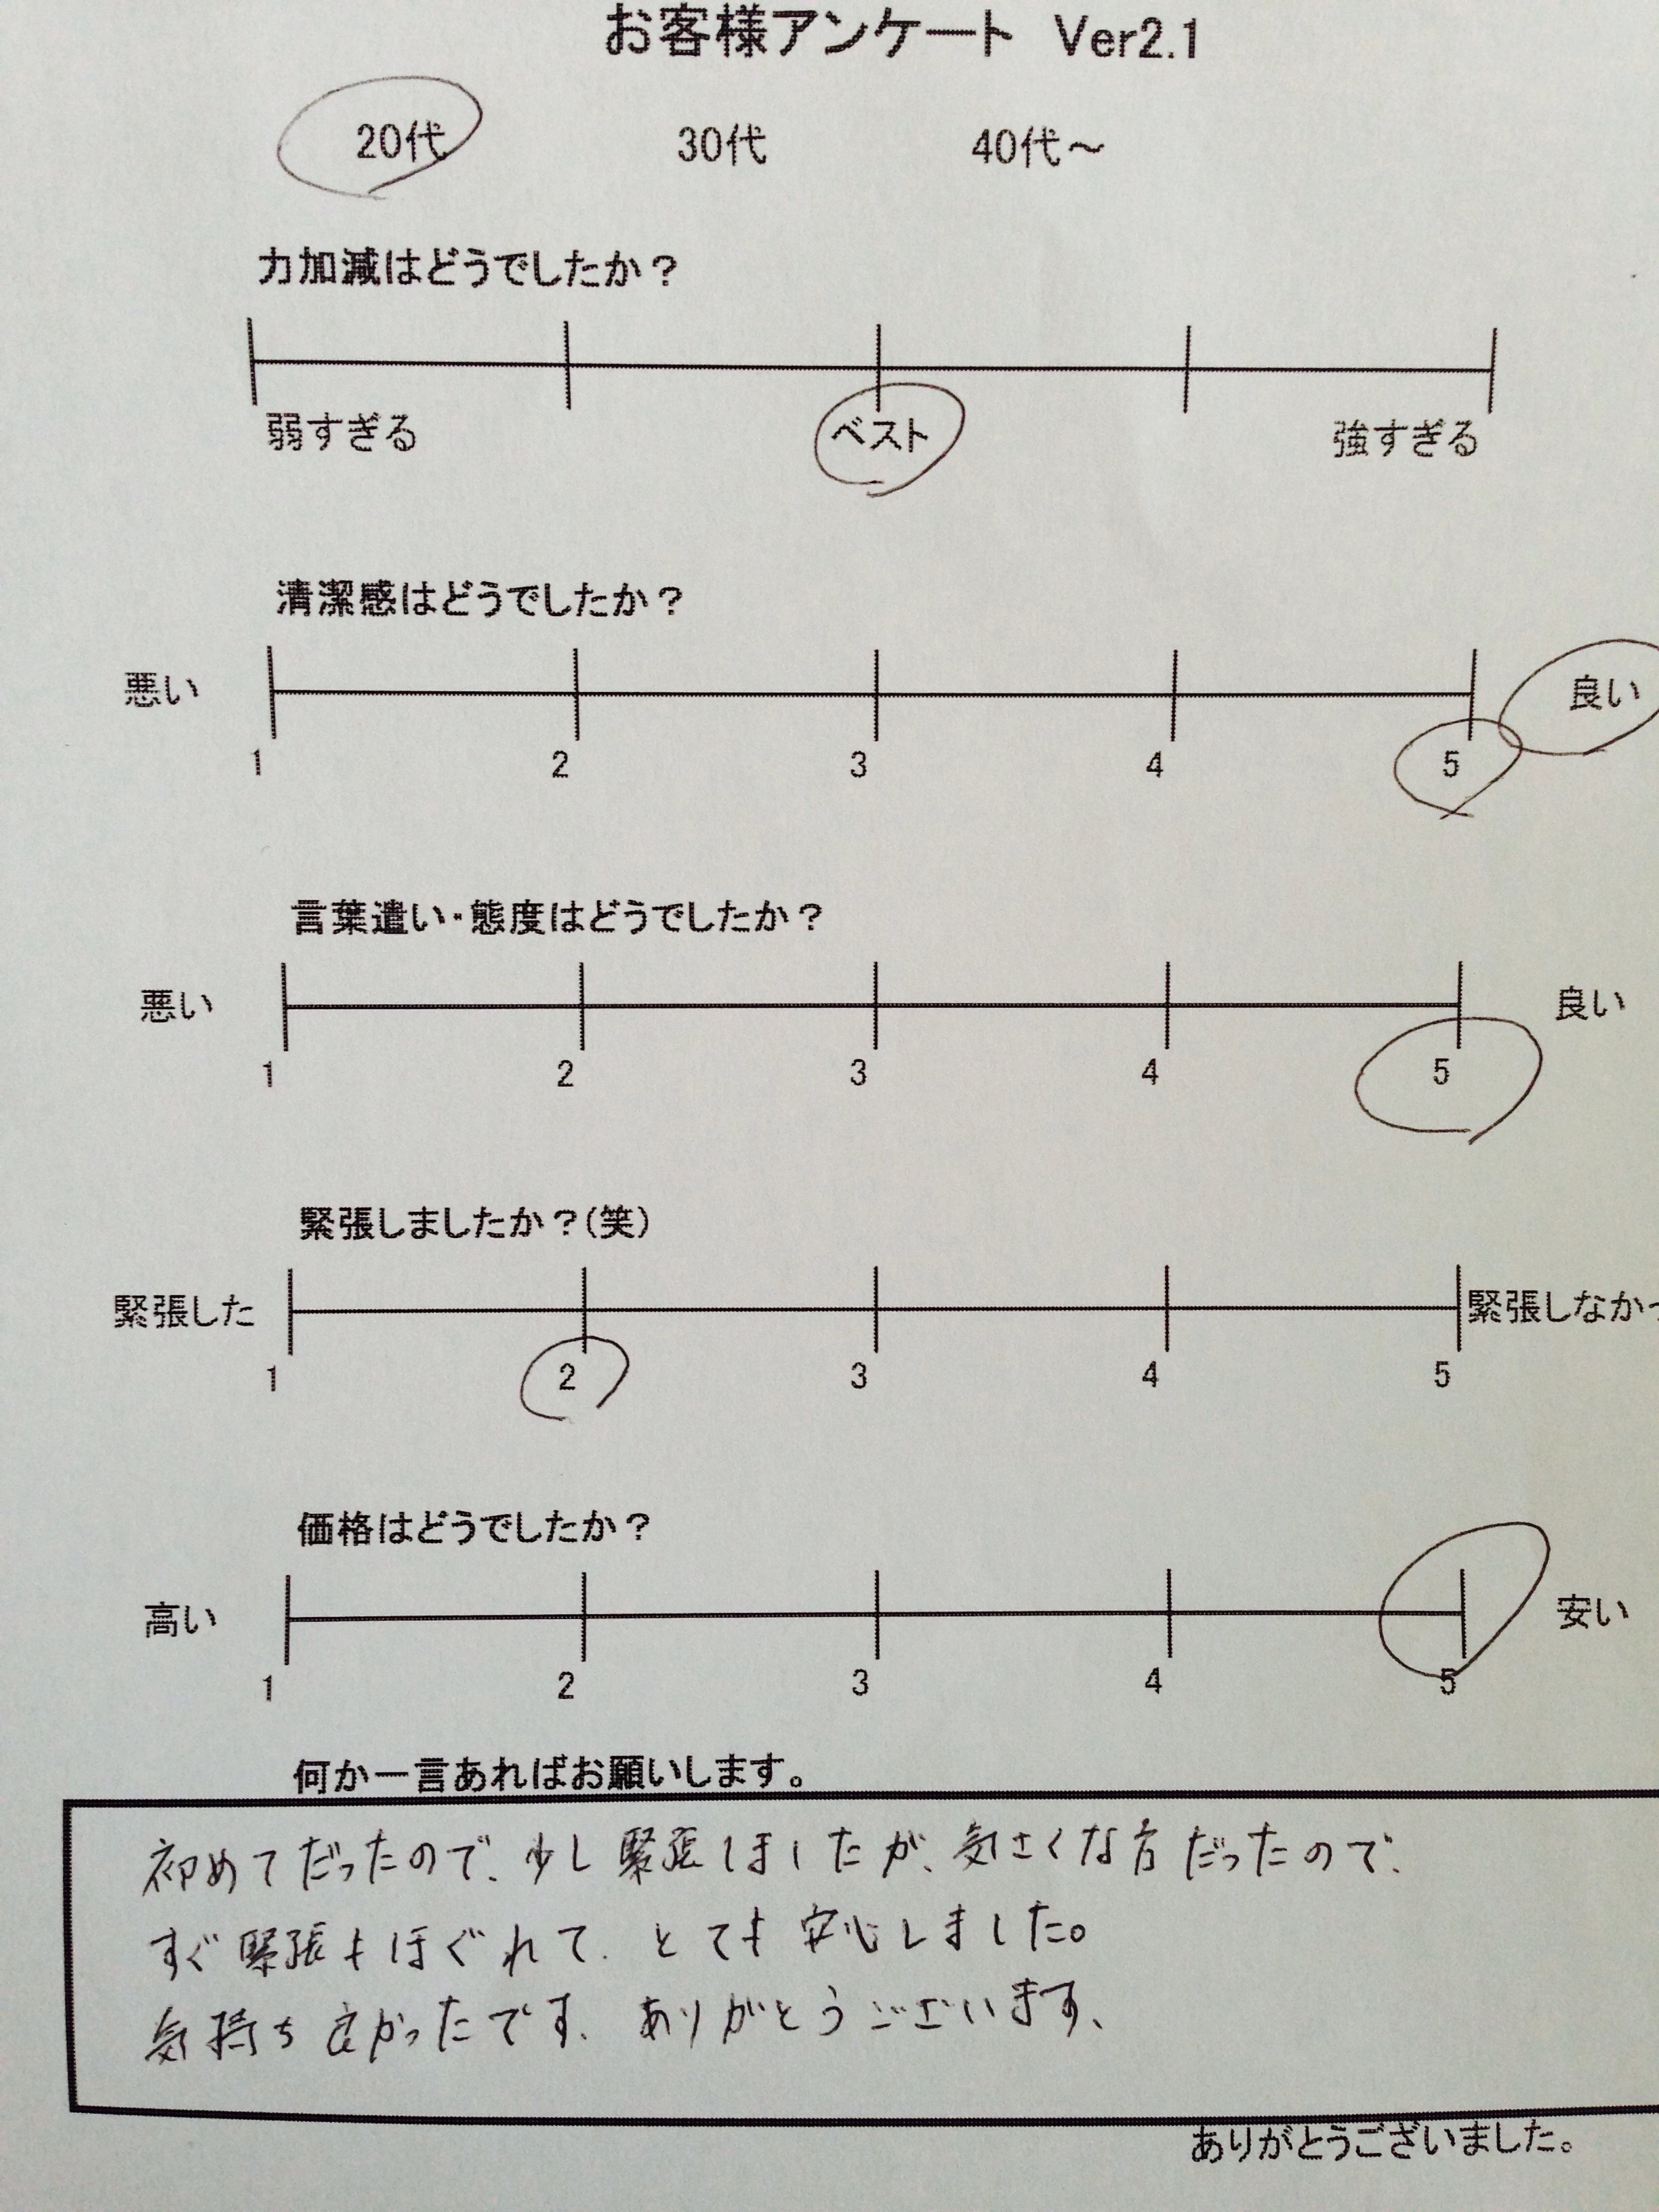 お客様アンケート Ver2.1
20代 30代 40代～
力加減はどうでしたか？
弱すぎる ベスト 強すぎる
清潔感はどうでしたか？
悪い 良い
1 2 3 4 5
言葉遣い・態度はどうでしたか？
悪い 良い
1 2 3 4 5
緊張しましたか？(笑)
緊張した 緊張しなかっ
1 2 3 4 5
価格はどうでしたか？
高い 安い
1 2 3 4 5
何か一言あればお願いします。
初めてだったので、少し緊張しましたが、気さくな方だったので、
すぐ緊張もほぐれて、とても安心しました。
気持ち良かったです、ありがとうございます、
ありがとうございました。